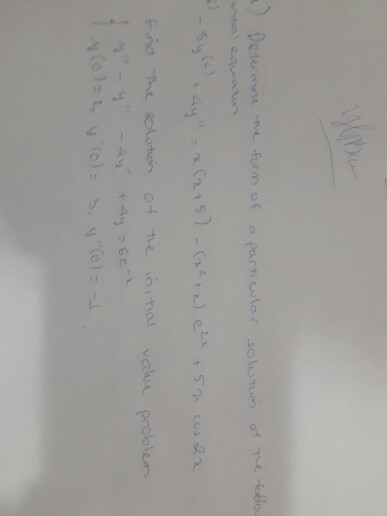 ) Determine the form of a particular solution of the follo
ormal equation
- 5y⁽⁴⁾ + 4y'' = x(x+5) - (x²+x) e²ˣ + 5x cos 2x
Find the solution of the initial value problem
y''' - y'' - 4y' + 4y = 6e⁻ˣ
y(0)=2, y'(0)=3, y''(0)=-1.